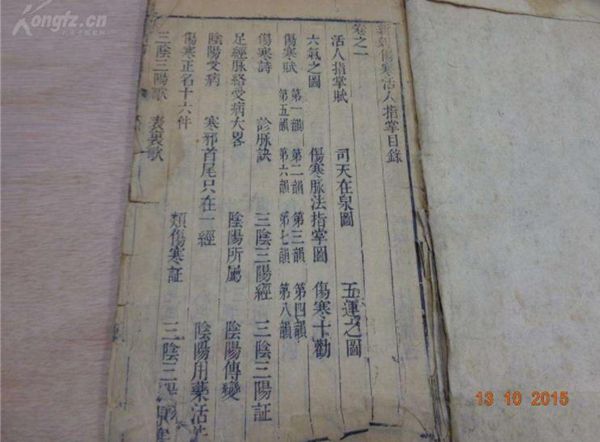 傷寒活人指掌目錄
卷之一
活人指掌賦 司天在泉圖 五運之圖
六氣之圖 傷寒脉法指掌圖 傷寒十勸
傷寒賦 第一韻 第二韻 第三韻 第四韻
第五韻 第六韻 第七韻 第八韻
傷寒詩 診脉訣 三陰三陽經 三陰三陽証
足經脉絡受病大畧 陰陽所屬 陰陽傳變
陰陽受病 寒邪首尾只在一經 陰陽用藥
傷寒正名十六件 類傷寒証 三陰三
三陰三陽歌 表裏歌
Kongfz.cn
13 10 2015